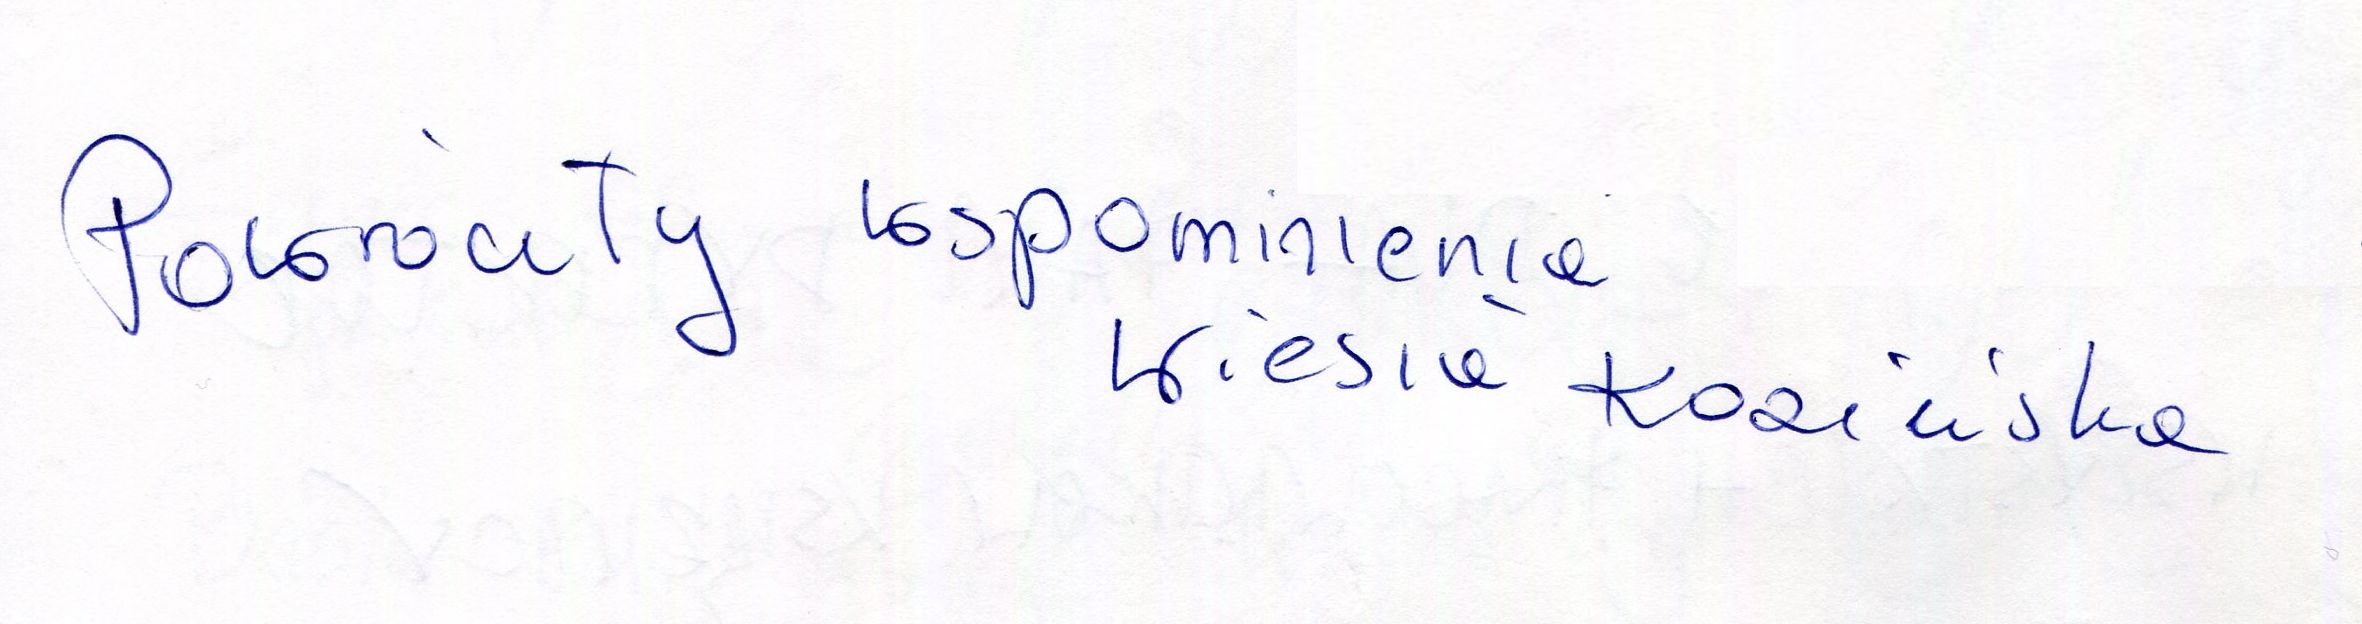 Powróciły wspomnienia
Wiesia Kozińska